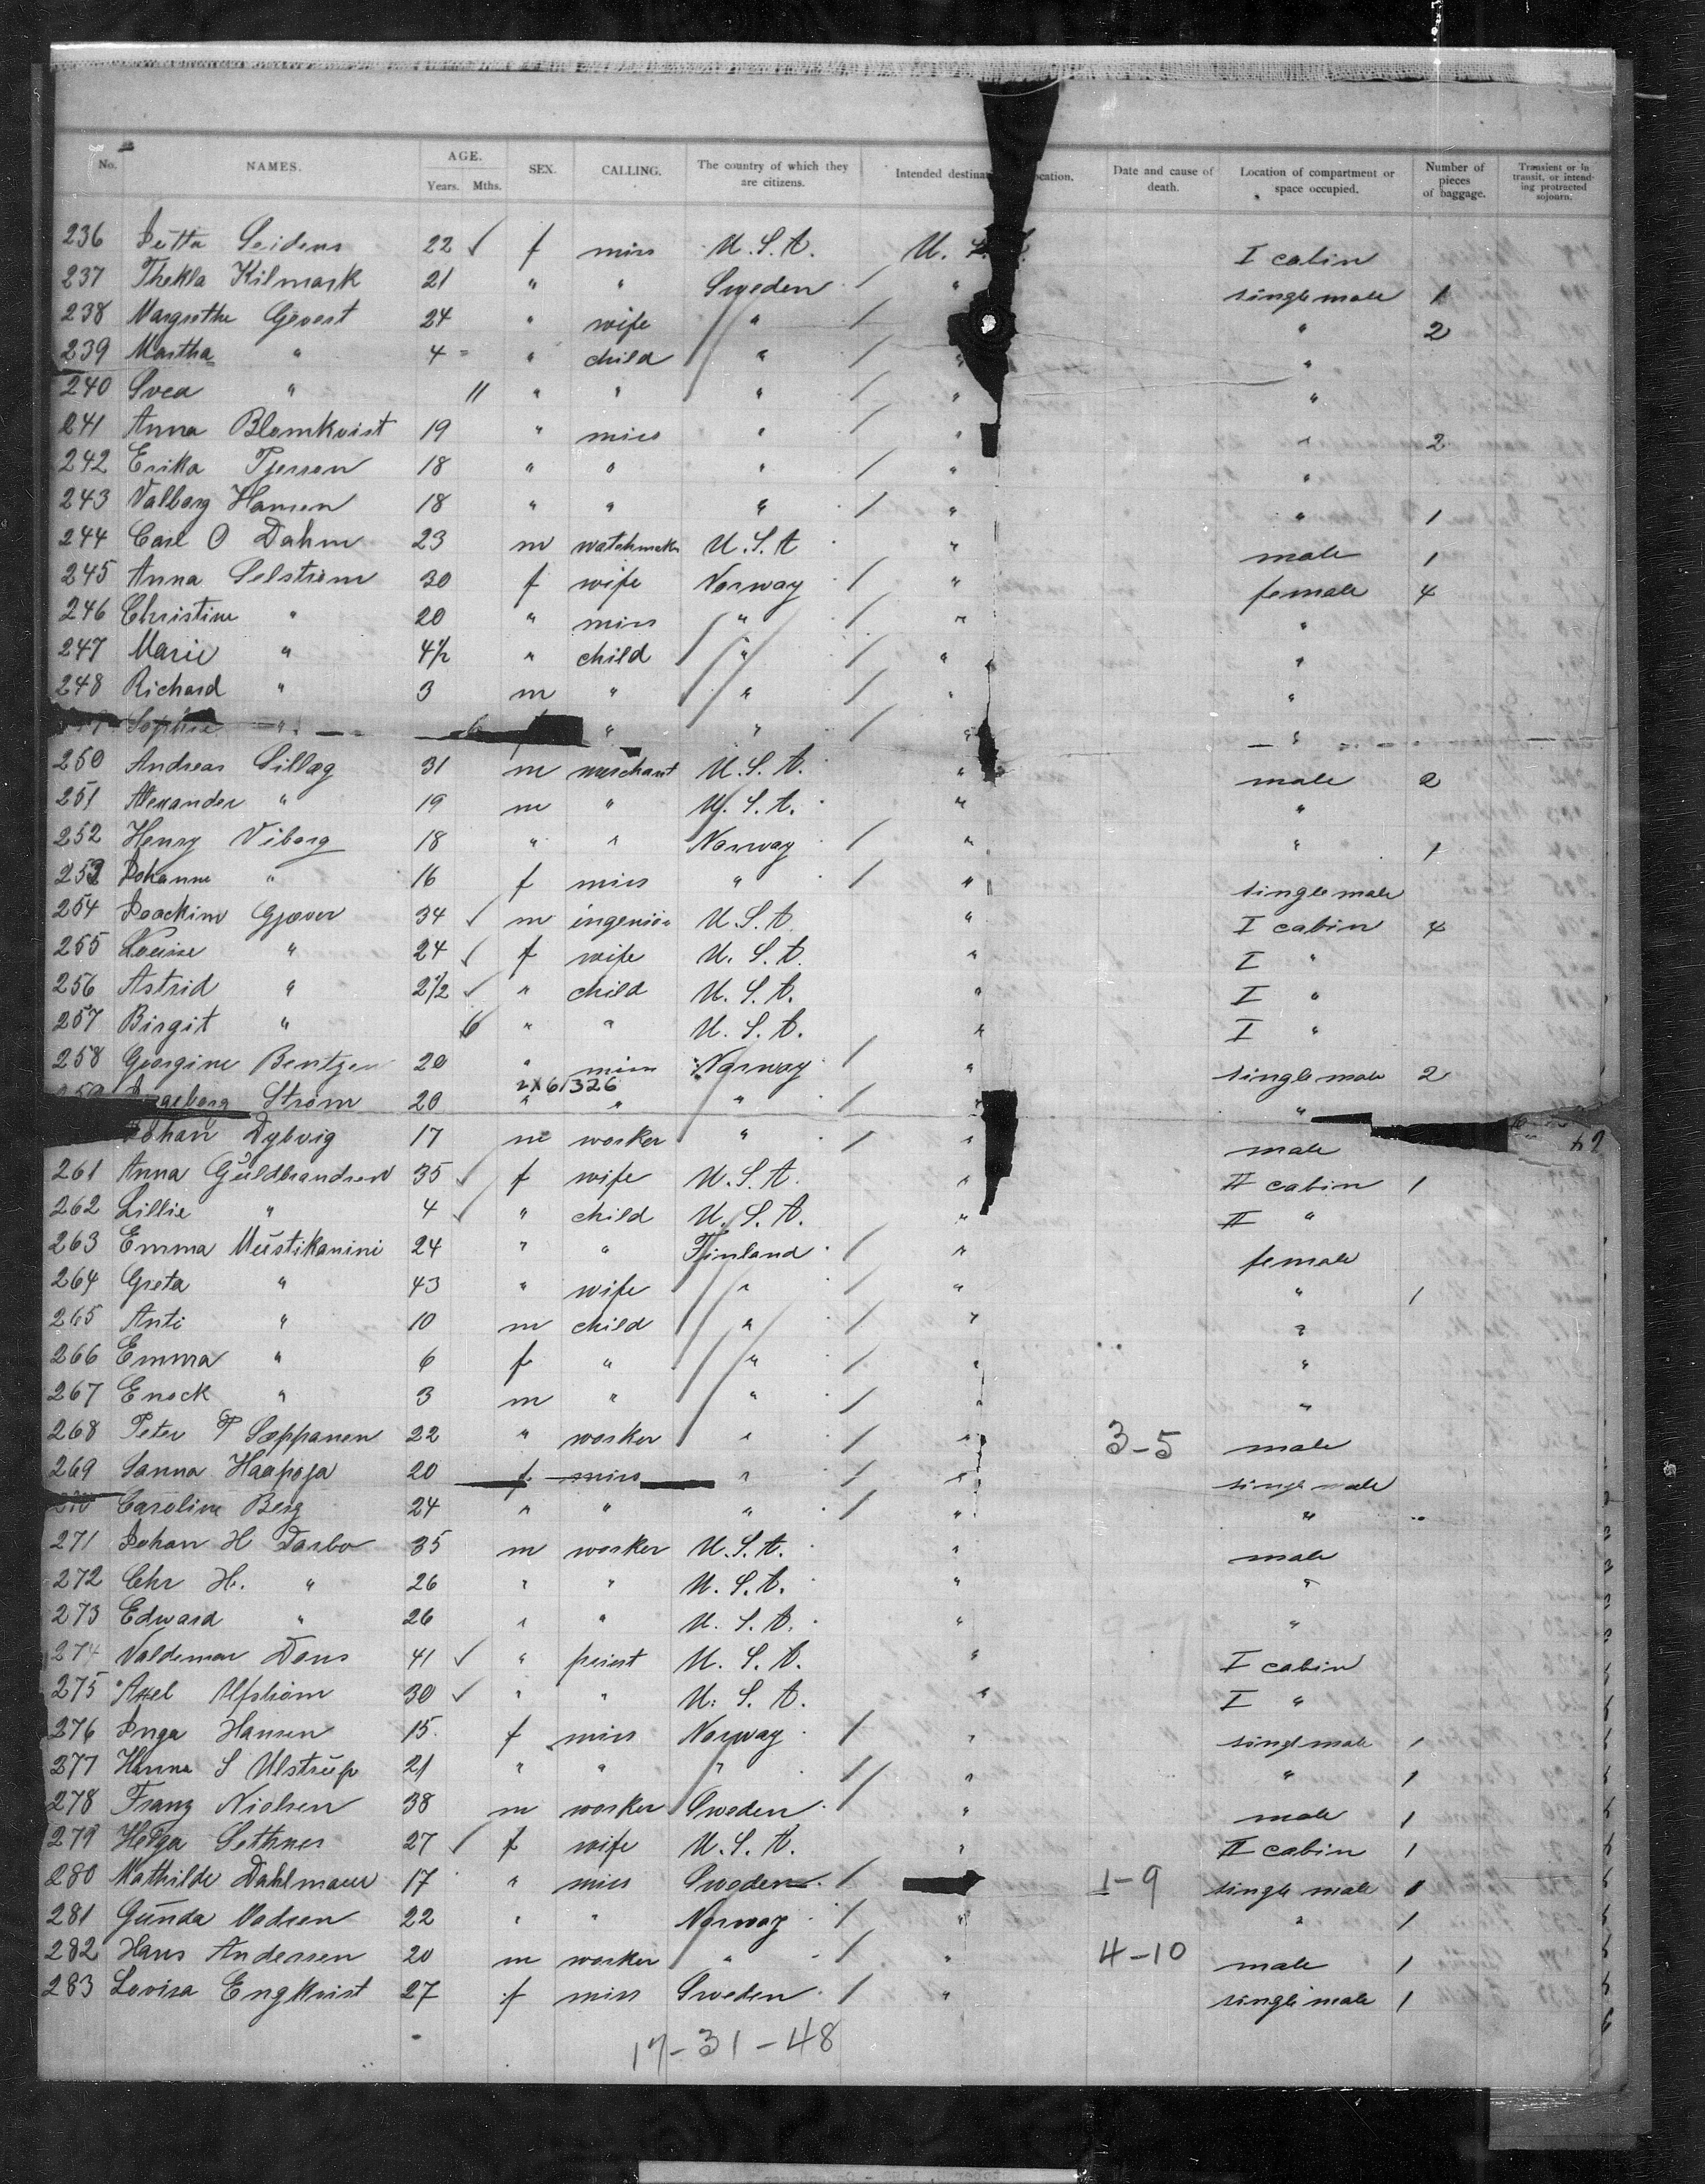 No. NAMES. AGE. Years. Mths. SEX. CALLING. The country of which they are citizens. Intended destinat ocation. Date and cause of death. Location of compartment or space occupied. Number of pieces of baggage. Transient or in transit, or intending protracted sojourn.
236 Jutta Seidens 22 ✓ f miss U.S.A. U. I cabin
237 Thekla Kilmark 21 " " Sweden / " single male 1
238 Margrethe Gevert 24 " wife " / " 2
239 Martha " 4 " child " / " "
240 Svea " 11 " " " / " "
241 Anna Blomkvist 19 " miss " / " " 2
242 Erika Pjerson 18 " " " / " "
243 Valborg Hansen 18 " " " / " " 1
244 Carl O Dahm 23 m watchmaker U.S.A " male 1
245 Anna Selström 30 f wife Norway / " female 4
246 Christine " 20 " miss " / " "
247 Marie " 4½ " child " / " "
248 Richard " 3 m " " / " "
Sophie " 6 " " / " "
250 Andreas Sillag 31 m merchant U.S.A. " male 2
251 Alexander " 19 m " U.S.A. " "
252 Henry Viborg 18 " " Norway / " " 1
253 Johanne " 16 f miss " / " single male
254 Joackim Gjæver 34 ✓ m ingeniör U.S.A. " I cabin 4
255 Louise " 24 ✓ f wife U.S.A. " I "
256 Astrid " 2½ ✓ " child U.S.A. " I "
257 Birgit " 6 " " U.S.A. " I "
258 Georgine Bentzen 20 " miss Norway / " single male 2
2X61326
259 Ingeborg Strøm 20 " " " / " "
Johan Dybvig 17 m worker " / " male
261 Anna Guldbrandsen 35 ✓ f wife U.S.A. " II cabin 1
262 Lillie " 4 ✓ " child U.S.A. " II "
263 Emma Mustikanini 24 " " Finland / " female
264 Greta " 43 " wife " / " " 1
265 Anti " 10 m child " / " "
266 Emma " 6 f " " / " "
267 Enock " 3 m " " / " "
268 Peter P Sæppanen 22 " worker " / " 3-5 male
269 Sanna Haapoja 20 f miss " / " single male
270 Caroline Berg 24 " " " / " "
271 Johan H Darbo 35 m worker U.S.A. " male
272 Chr H. " 26 " " U.S.A. " "
273 Edward " 26 " " U.S.A. " "
274 Valdemar Dons 41 ✓ " priest U.S.A. " I cabin
275 Axel Ulfström 30 ✓ " " U.S.A. " I "
276 Inga Hansen 15 f miss Norway / " singl male 1
277 Hanna S Ulstrup 21 " " " / " " 1
278 Franz Nielsen 38 m worker Sweden / " male 1
279 Helga Sethnes 27 ✓ f wife U.S.A. " II cabin 1
280 Mathilde Dahlmann 17 " miss Sweden / 1-9 single male 1
281 Gunda Madsen 22 " " Norway / " " 1
282 Hans Andersen 20 m worker " / " 4-10 male 1
283 Lovisa Engkvist 27 f miss Sweden / " single male 1
17-31-48